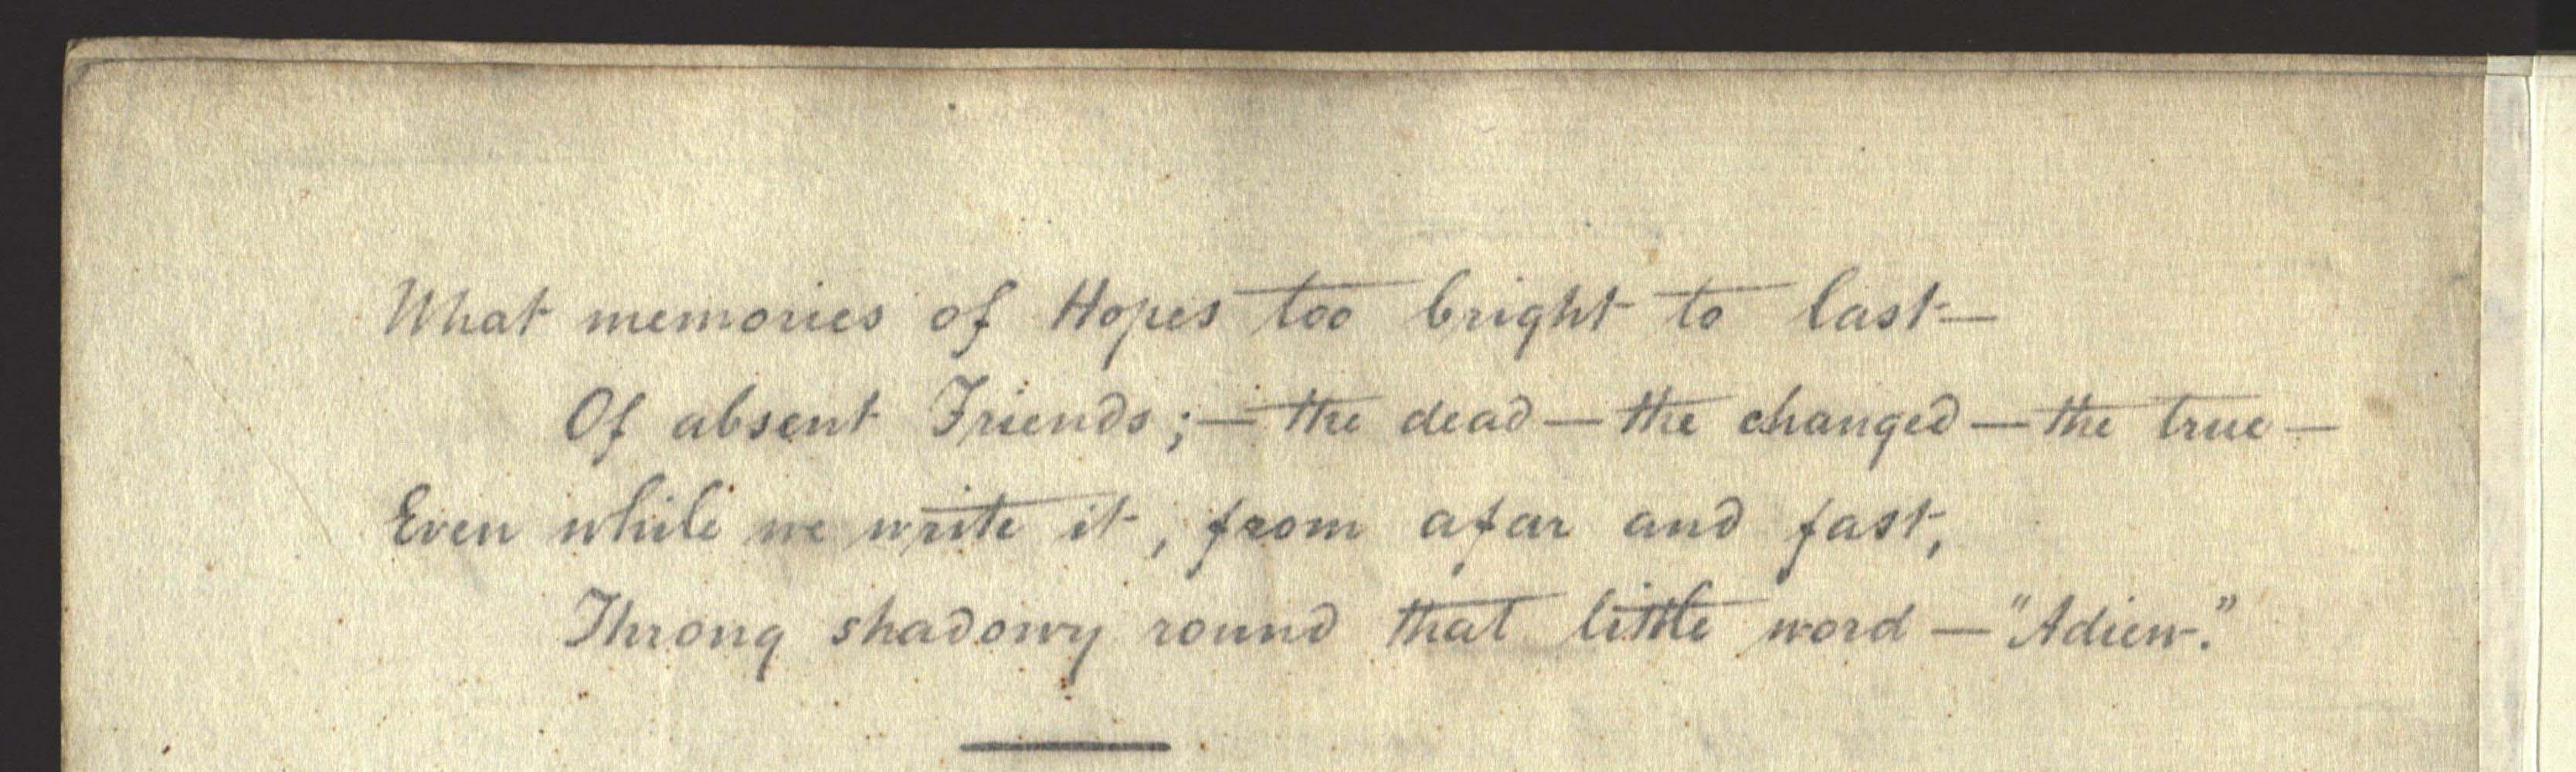 What memories of Hopes too bright to last—
Of absent Friends;—the dead—the changed—the true—
Even while we write it, from afar and fast,
Throng shadowy round that little word—"Adieu."